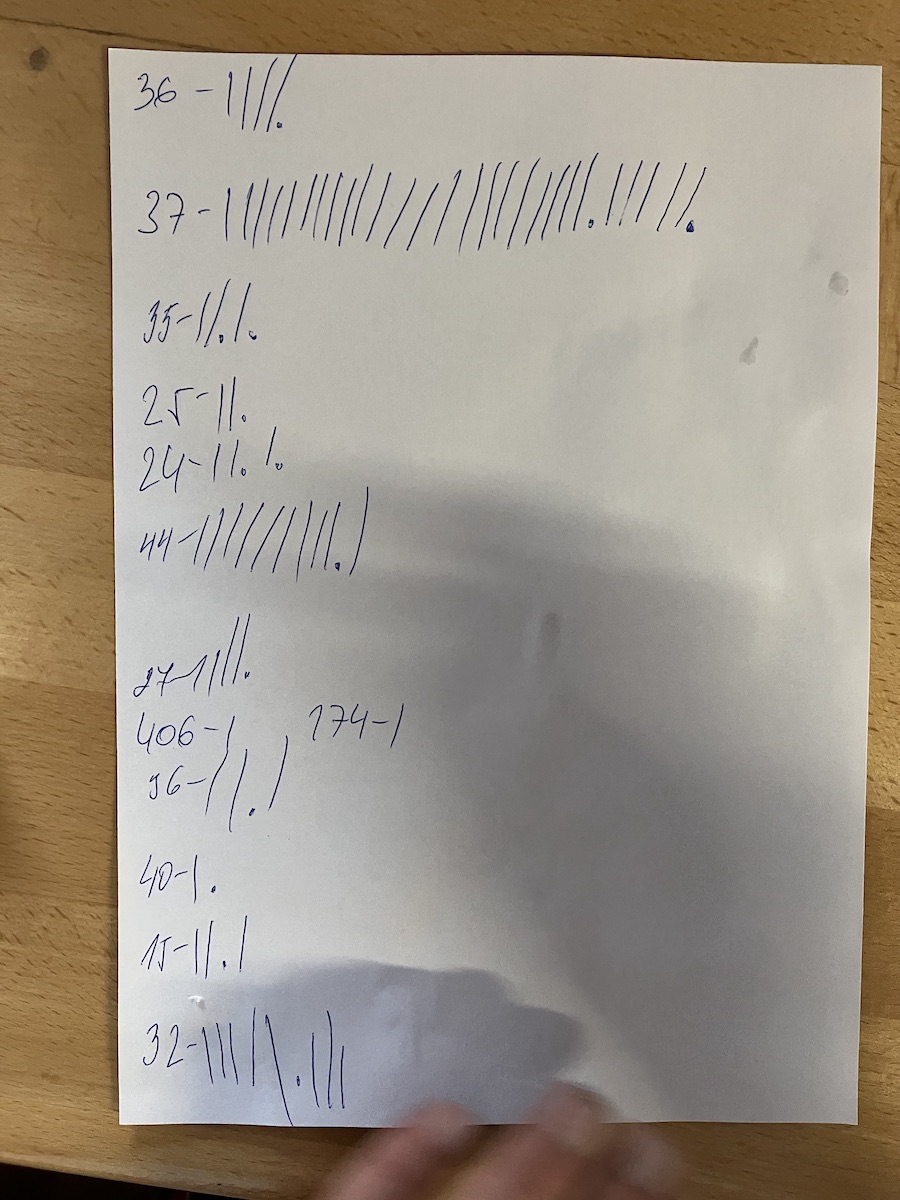 36 - ||||.
37 - |||||||||||||||||||||||||.|||||.
35 - ||.|.
25 - ||.
24 - ||.|.
44 - ||||||||||.|
27 - |||||.
406 - | 174 - |
96 - ||.|
40 - |.
15 - ||.|
32 - |||||.|||